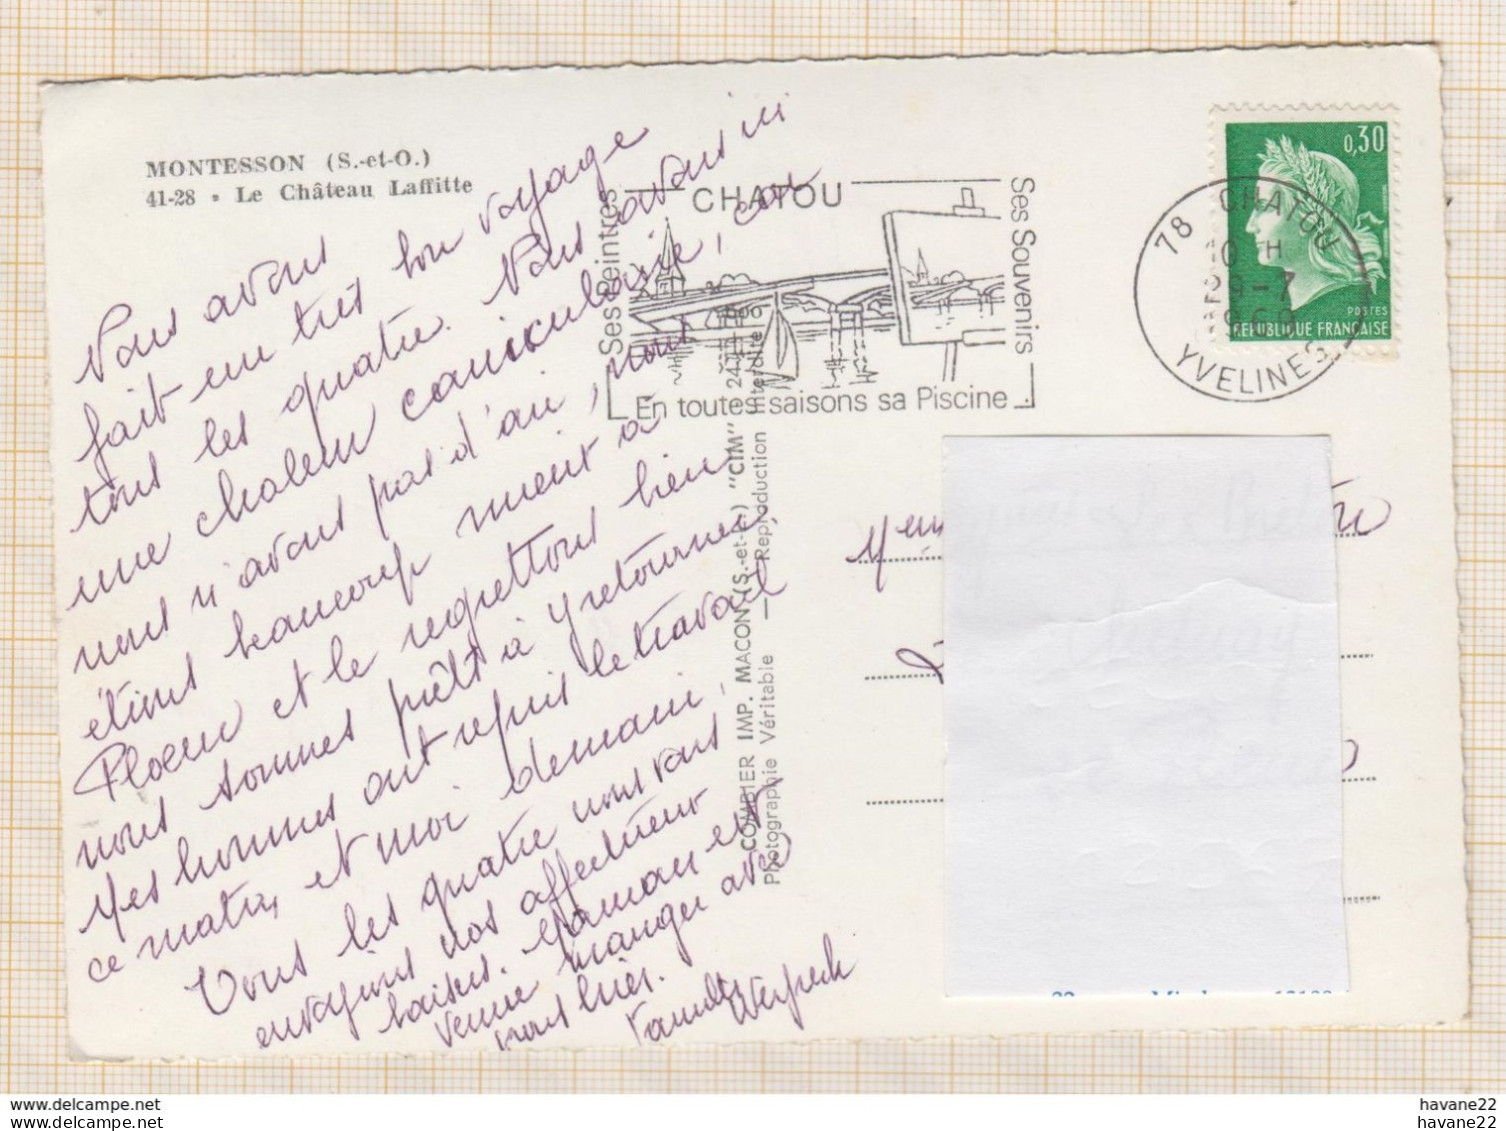 MONTESSON (S.-et-O.)
41-28 - Le Château Laffitte
Nous avons
fait un très bon voyage
tous les quatre. Nous avons ici
une chaleur caniculaire, car
nous n'avons pas d'air, nous
étions beaucoup mieux à
Ploeuc et le regrettons bien
nous sommes prêts à y retourner,
Mes hommes ont repris le travail
ce matin, et moi demain,
Tous les quatre nous vous
envoyons nos affectueux
baisers. Maman est
venue manger avec
nous hier.
Famille
CHATOU
Ses Peintres
Ses Souvenirs
En toutes saisons sa Piscine
78 CHATOU
10 H
29-7
1969
YVELINES
0,30
POSTES
REPUBLIQUE FRANÇAISE
COMBIER IMP. MACON (S.-et-L.) "CIM"
Photographie Véritable — Reproduction Interdite
havane22
havane22
havane22
havane22